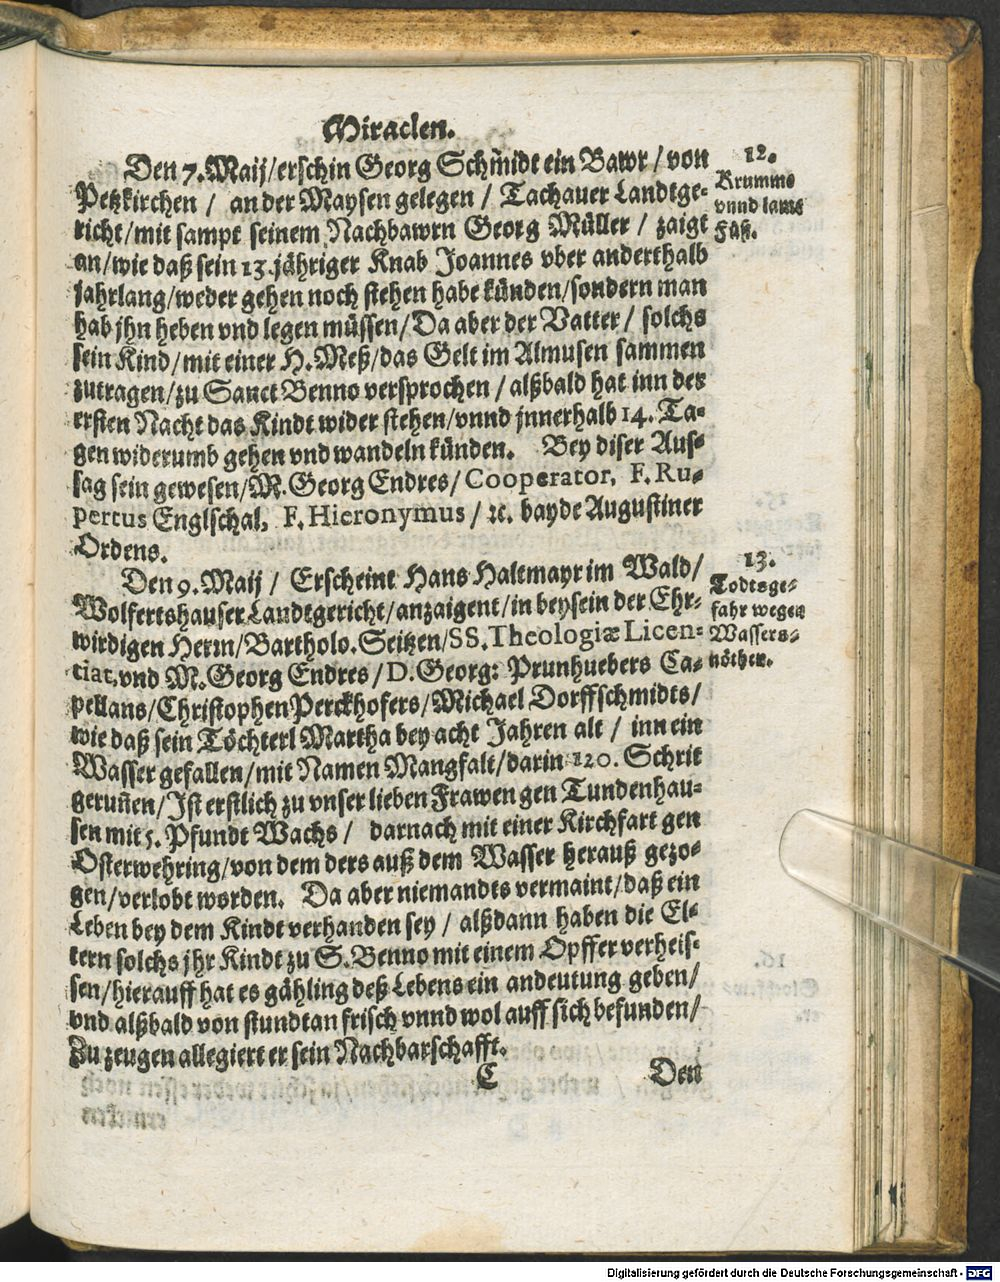 Miraclen.
Den 7. Maij / erschin Georg Schmidt ein Bawr / von
Petzkirchen / an der Maysen gelegen / Tachauer Landtge-
richt / mit sampt seinem Nachbawrn Georg Müller / zaigt
an / wie daß sein 13. jähriger Knab Joannes vber anderthalb
Jahrlang / weder gehen noch stehen habe künden / sondern man
hab jhn heben vnd legen müssen / Da aber der Vatter / solchs
sein Kind / mit einer H. Meß / das Gelt im Almusen sammen
zutragen / zu Sanct Benno versprochen / alßbald hat inn der
ersten Nacht das Kindt wider stehen / vnnd jnnerhalb 14. Ta-
gen widerumb gehen vnd wandeln künden. Bey diser Auß-
sag sein gewesen / M. Georg Endres / Cooperator, F. Ru-
pertus Englschal, F. Hieronymus / ꝛc. bayde Augustiner
Ordens.
12.
Krumme
vnnd lame
Füß.
Den 9. Maij / Erscheint Hans Haltmayr im Wald /
Wolfertshauser Landtgericht / anzaigent / in beysein der Ehr-
wirdigen Herrn / Bartholo. Seitzen / SS. Theologiæ Licen-
tiat, vnd M. Georg Endres / D. Georg: Prunhuebers Ca-
pellans / Christophen Perckhofers / Michael Dorffschmidts /
wie daß sein Töchterl Martha bey acht Jahren alt / inn ein
Wasser gefallen / mit Namen Mangfalt / darin 120. Schrit
geruñen / Ist erstlich zu vnser lieben Frawen gen Tundenhau-
sen mit 5. Pfundt Wachs / darnach mit einer Kirchfart gen
Osterwehring / von dem ders auß dem Wasser herauß gezo-
gen / verlobt worden. Da aber niemandts vermaint / daß ein
Leben bey dem Kindt verhanden sey / alßdann haben die El-
tern solchs jhr Kindt zu S. Benno mit einem Opffer verheis-
sen / hierauff hat es gähling deß Lebens ein andeutung geben /
vnd alßbald von stundt an frisch vnnd wol auff sich befunden /
Zu zeugen allegiert er sein Nachbarschafft.
13.
Todtsge-
fahr wegen
Wassers-
nöthen.
C Den
Digitalisierung gefördert durch die Deutsche Forschungsgemeinschaft - DFG